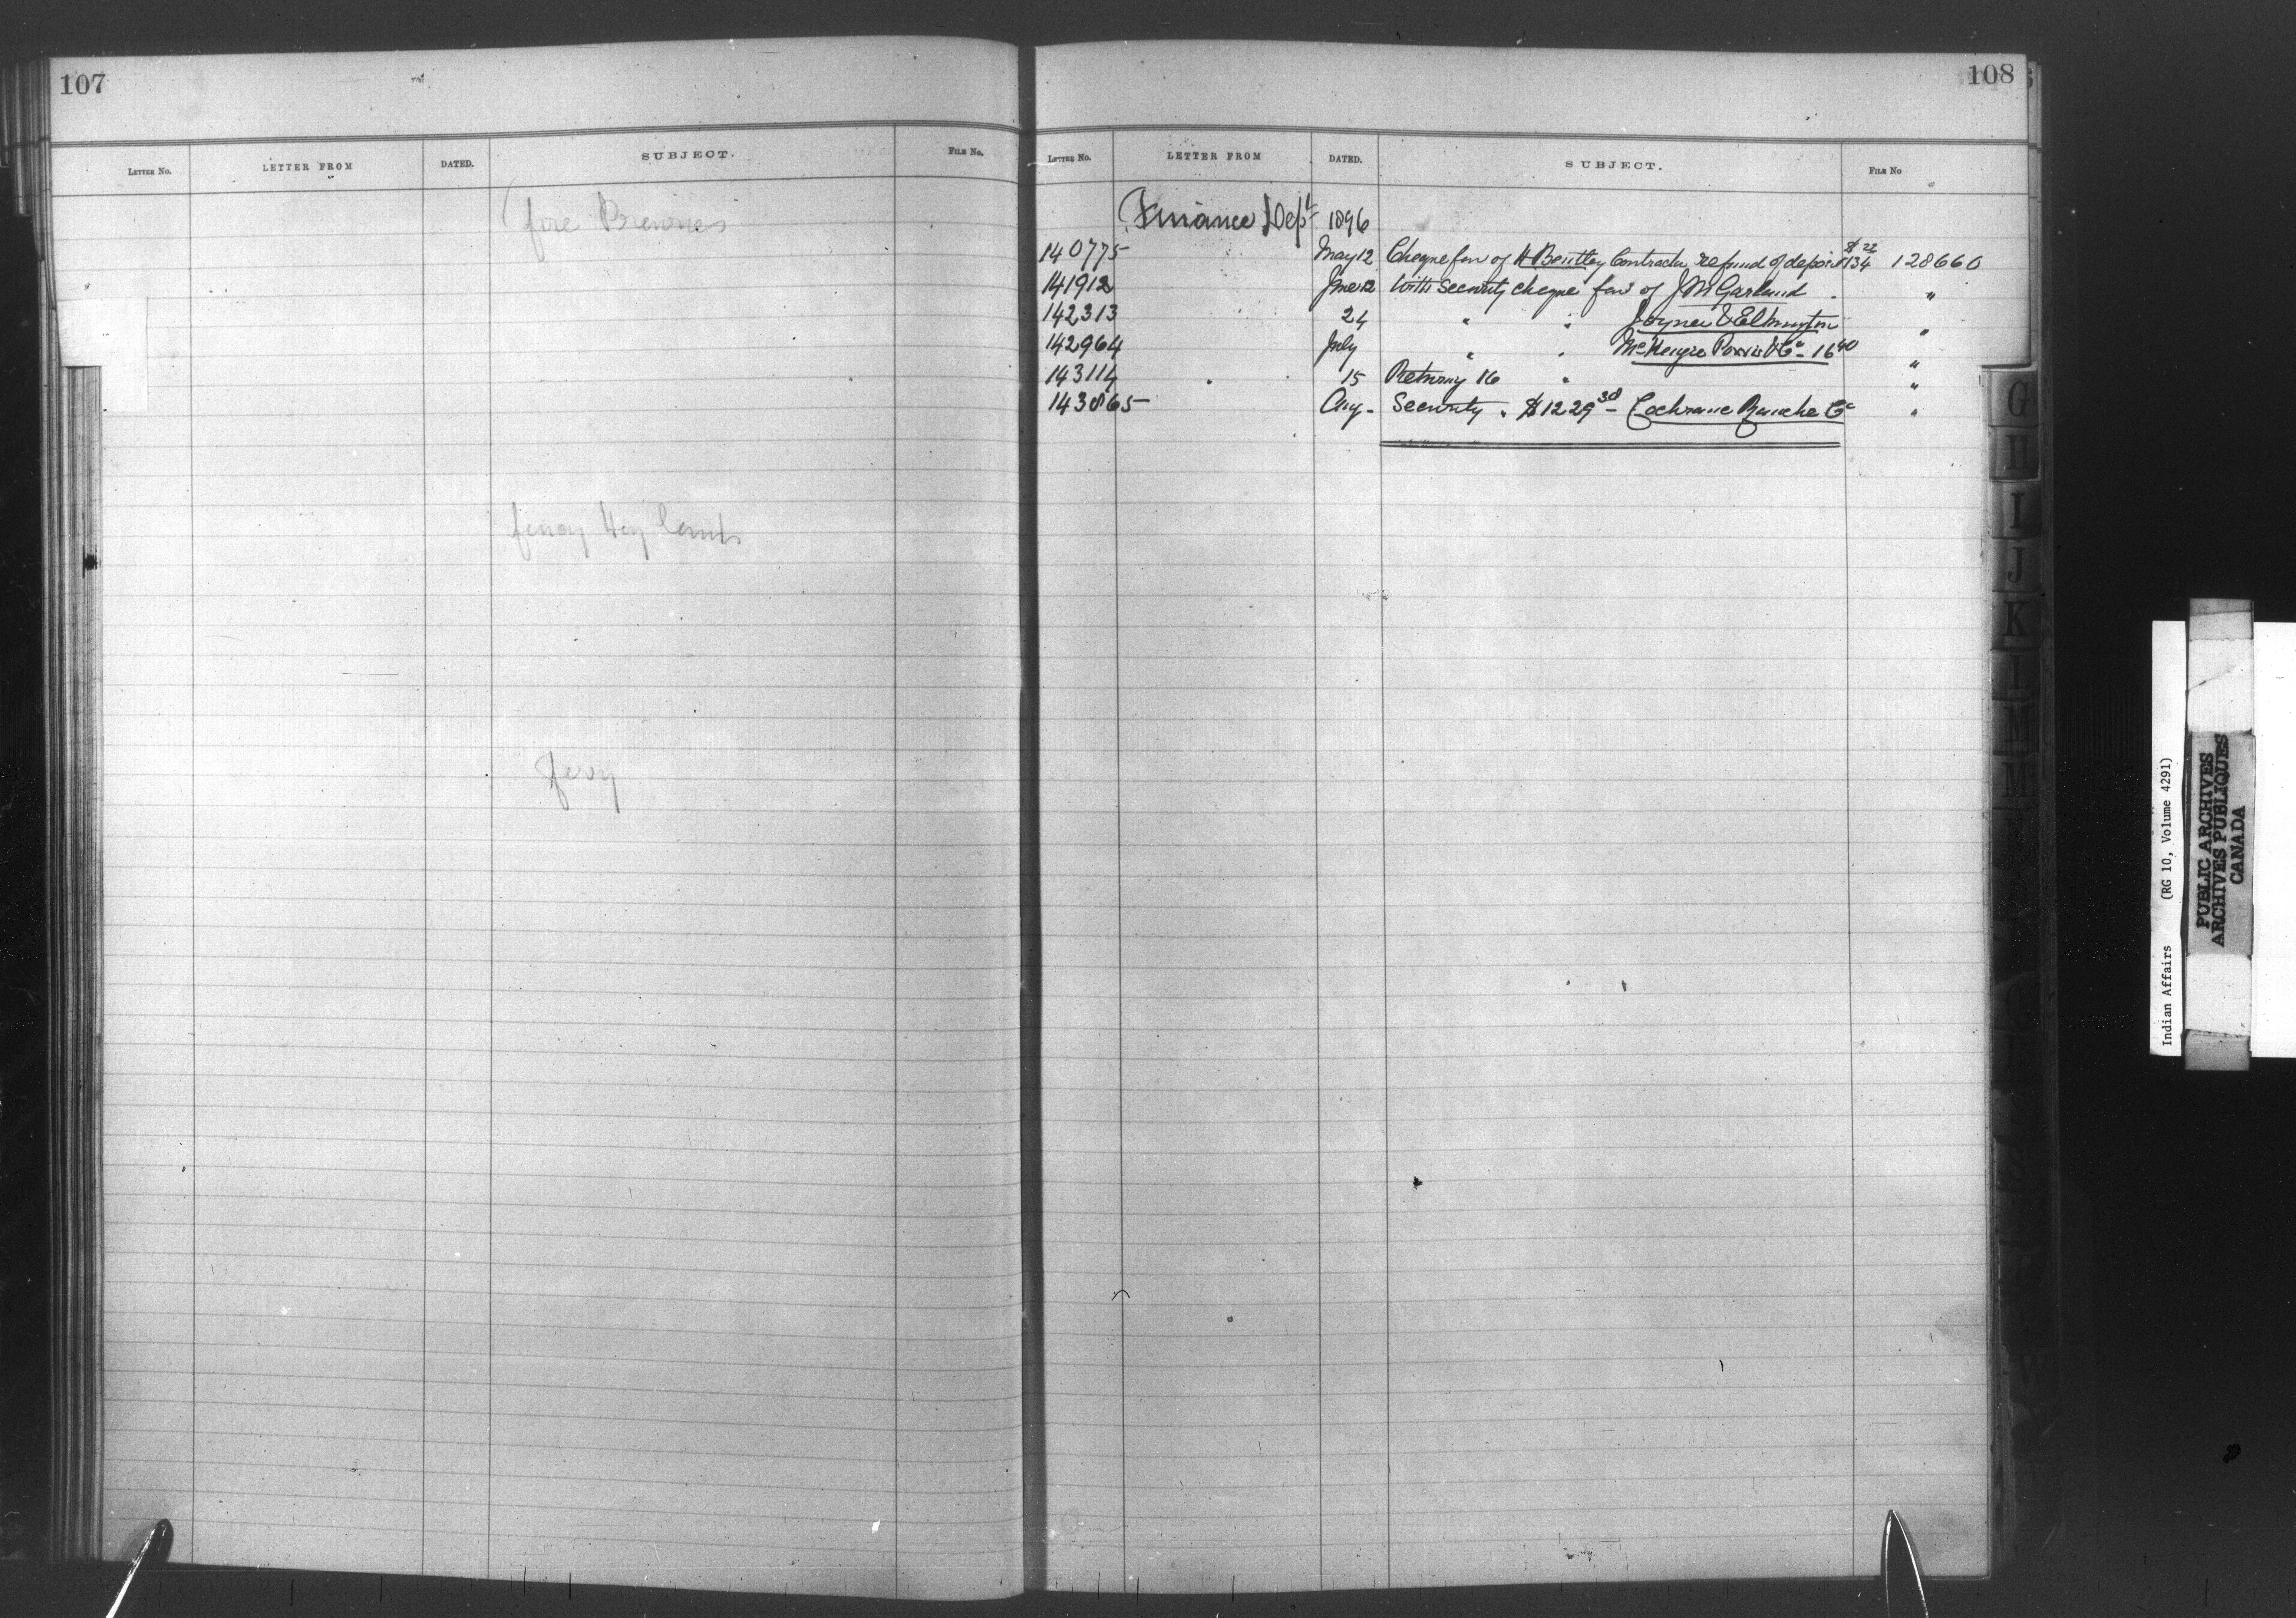 107
LETTER NO. LETTER FROM DATED. SUBJECT. FILE NO.
fire
ferry
108
LETTER NO. LETTER FROM DATED. SUBJECT. FILE NO
Finance Dept 1896
140775 May 12 Cheque fav of H Bentley Contractor refund of deposit $134 22 128660
141912 June 12 With Security cheque fav of J M Garland "
142313 24 " " Joyner & Elkington "
142964 July " " McKenzie Powis & Co - 16 40 "
143114 " 15 Returning 16 " "
143865 Aug - Security " $1229 38 - Cochrane Ranche Co "
G
H
I
J
K
L
M
Mc
W
Indian Affairs (RG 10, Volume 4291)
PUBLIC ARCHIVES
ARCHIVES PUBLIQUES
CANADA